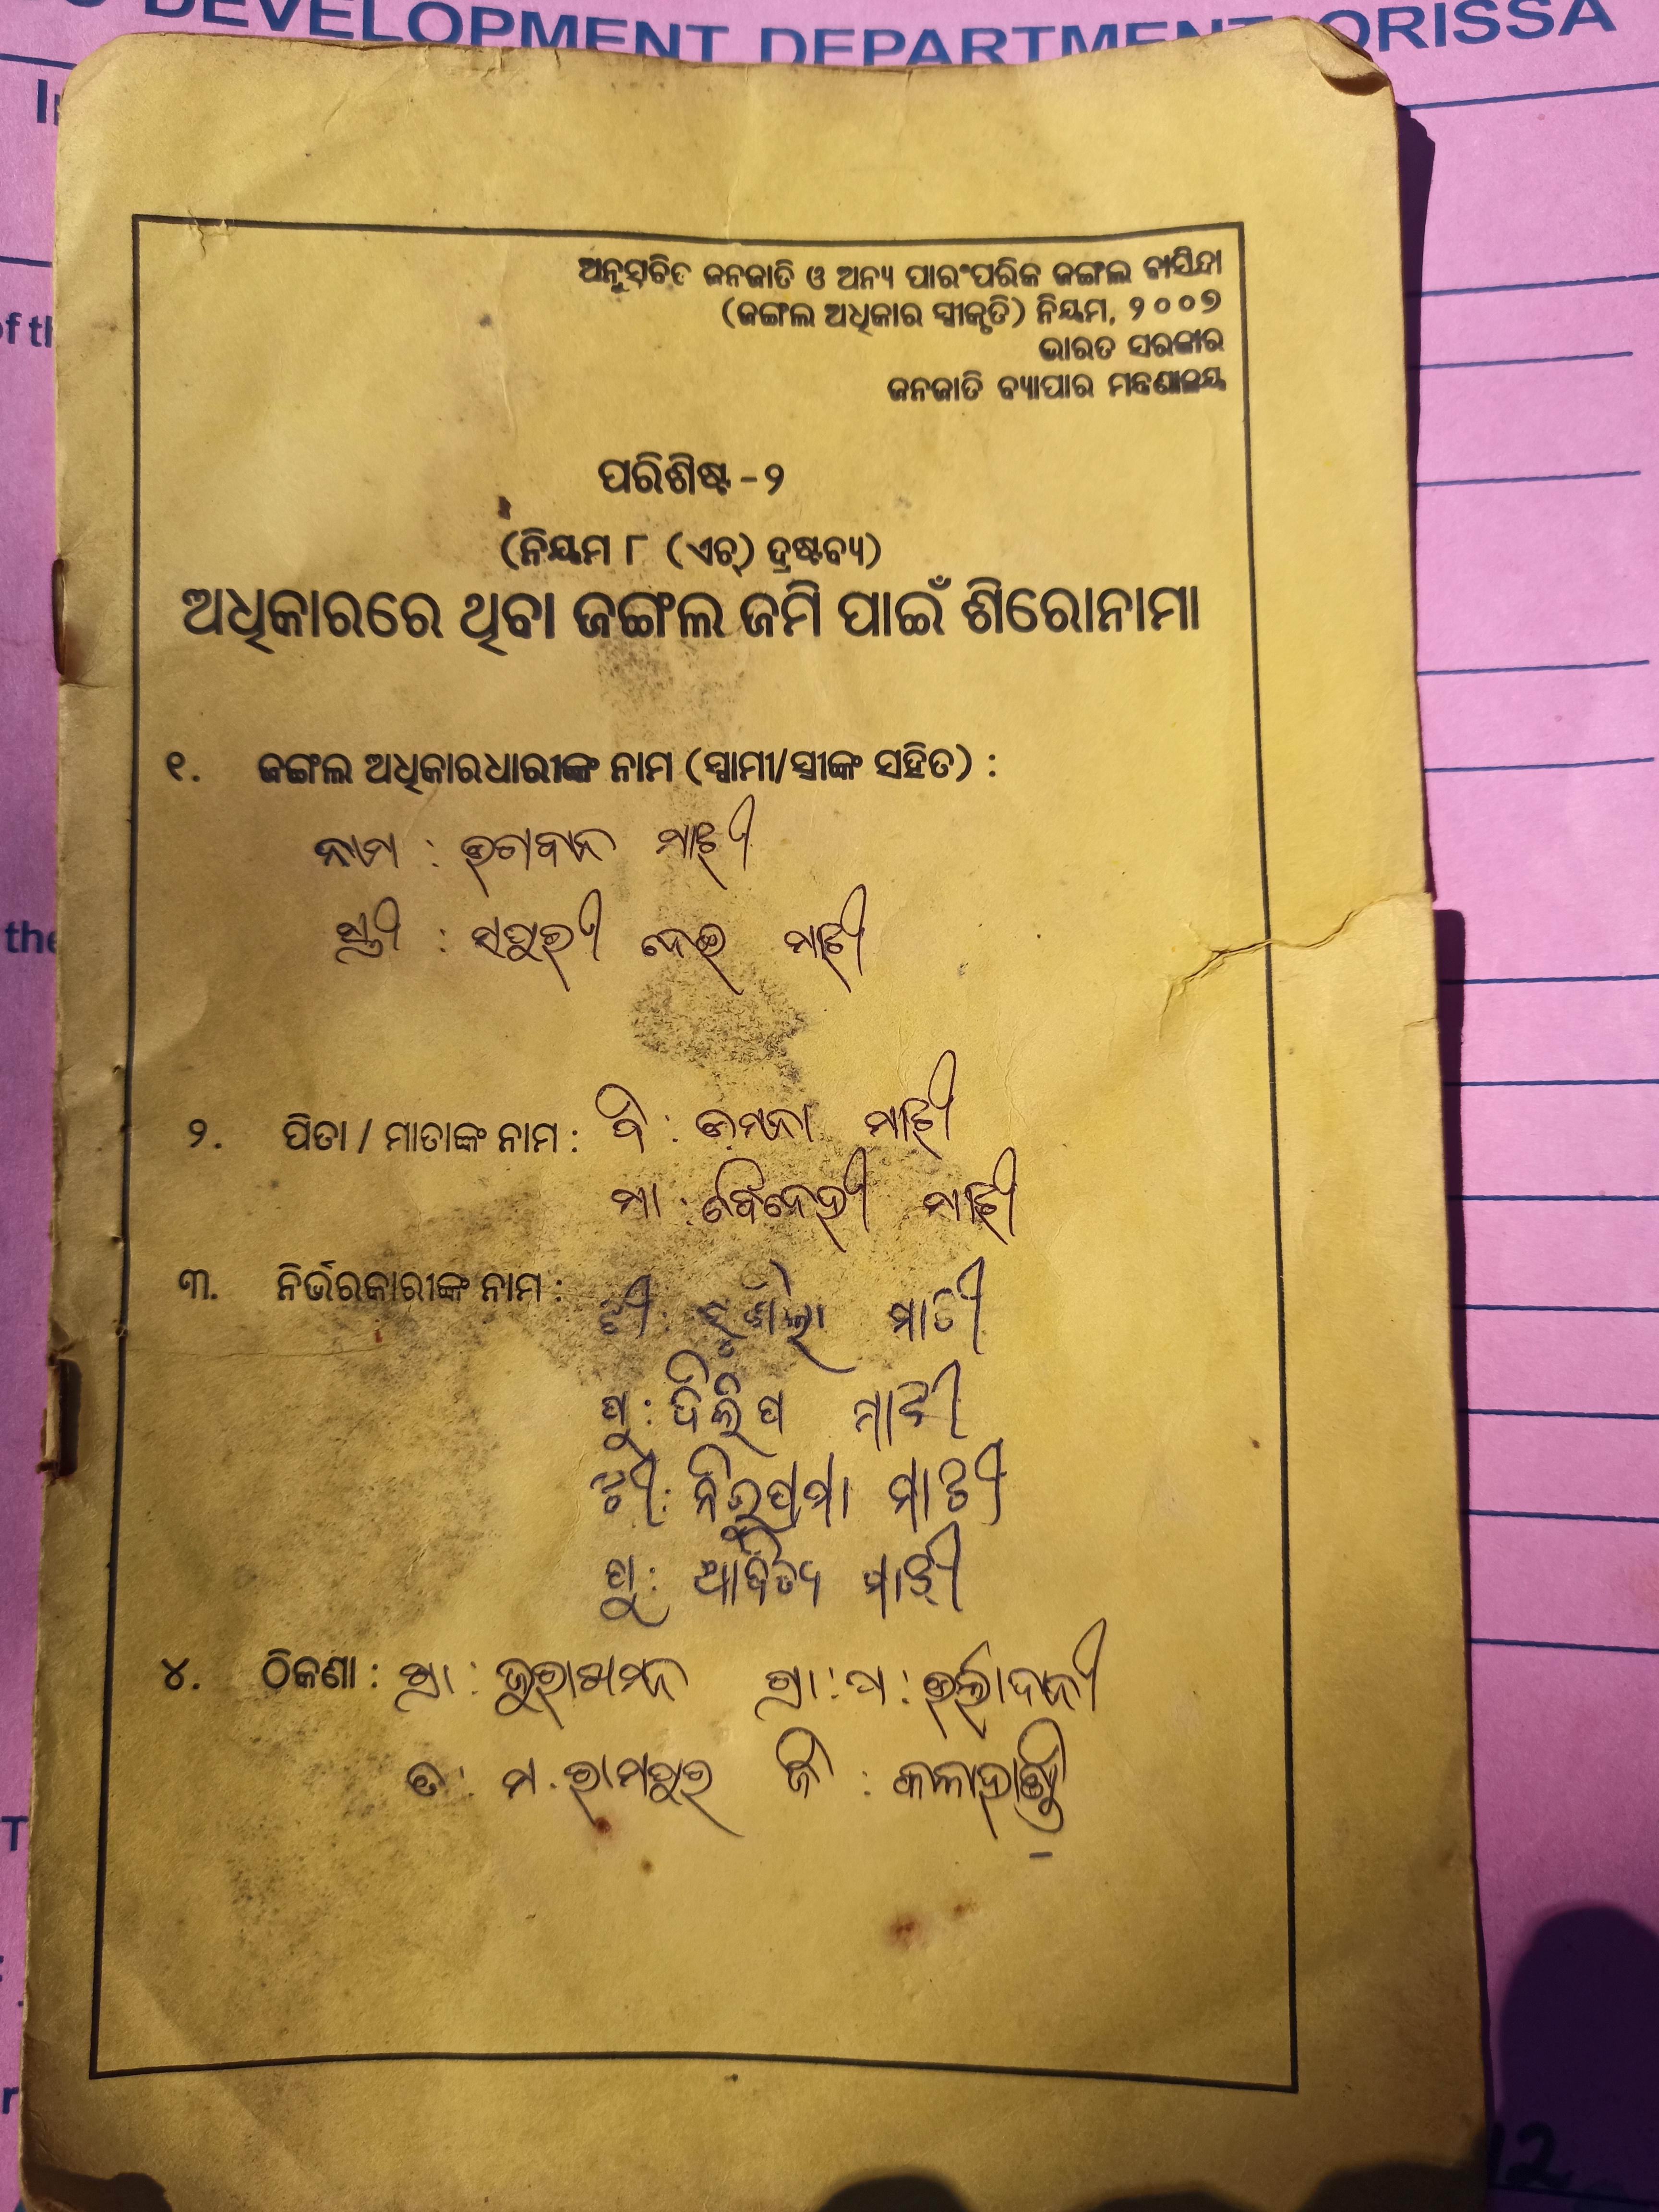 DEVELOPMENT DEPARTMENT ORISSA
of th
the
ଅନୁସୂଚିତ ଜନଜାତି ଓ ଅନ୍ୟ ପାରଂପରିକ ଜଙ୍ଗଲ ବାସିନ୍ଦା
(ଜଙ୍ଗଲ ଅଧିକାର ସ୍ୱୀକୃତି) ନିୟମ, ୨୦୦୭
ଭାରତ ସରକାର
ଜନଜାତି ବ୍ୟାପାର ମନ୍ତ୍ରଣାଳୟ
ପରିଶିଷ୍ଟ - ୨
(ନିୟମ ୮ (ଏଚ୍) ଦ୍ରଷ୍ଟବ୍ୟ)
ଅଧିକାରରେ ଥିବା ଜଙ୍ଗଲ ଜମି ପାଇଁ ଶିରୋନାମା
୧. ଜଙ୍ଗଲ ଅଧିକାରଧାରୀଙ୍କ ନାମ (ସ୍ୱାମୀ/ସ୍ତ୍ରୀଙ୍କ ସହିତ) :
ନାମ : ଭଗବାନ ମାଝୀ
ସ୍ତ୍ରୀ : ସପୁରୀ ଦେଇ ମାଝୀ
୨. ପିତା / ମାତାଙ୍କ ନାମ : ପି : ମାଝୀ
ମା : ମାଝୀ
୩. ନିର୍ଭରକାରୀଙ୍କ ନାମ : ଝୀ : ସୁଶିଲା ମାଝୀ
ପୁ : ଦିଲିପ ମାଝୀ
ଝୀ : ନିରୁପମା ମାଝୀ
ପୁ : ଆଦିତ୍ୟ ମାଝୀ
୪. ଠିକଣା : ଗ୍ରା : ଗ୍ରା : ପ :
ମ . ରାମପୁର ଜି : କଳାହାଣ୍ଡି
12